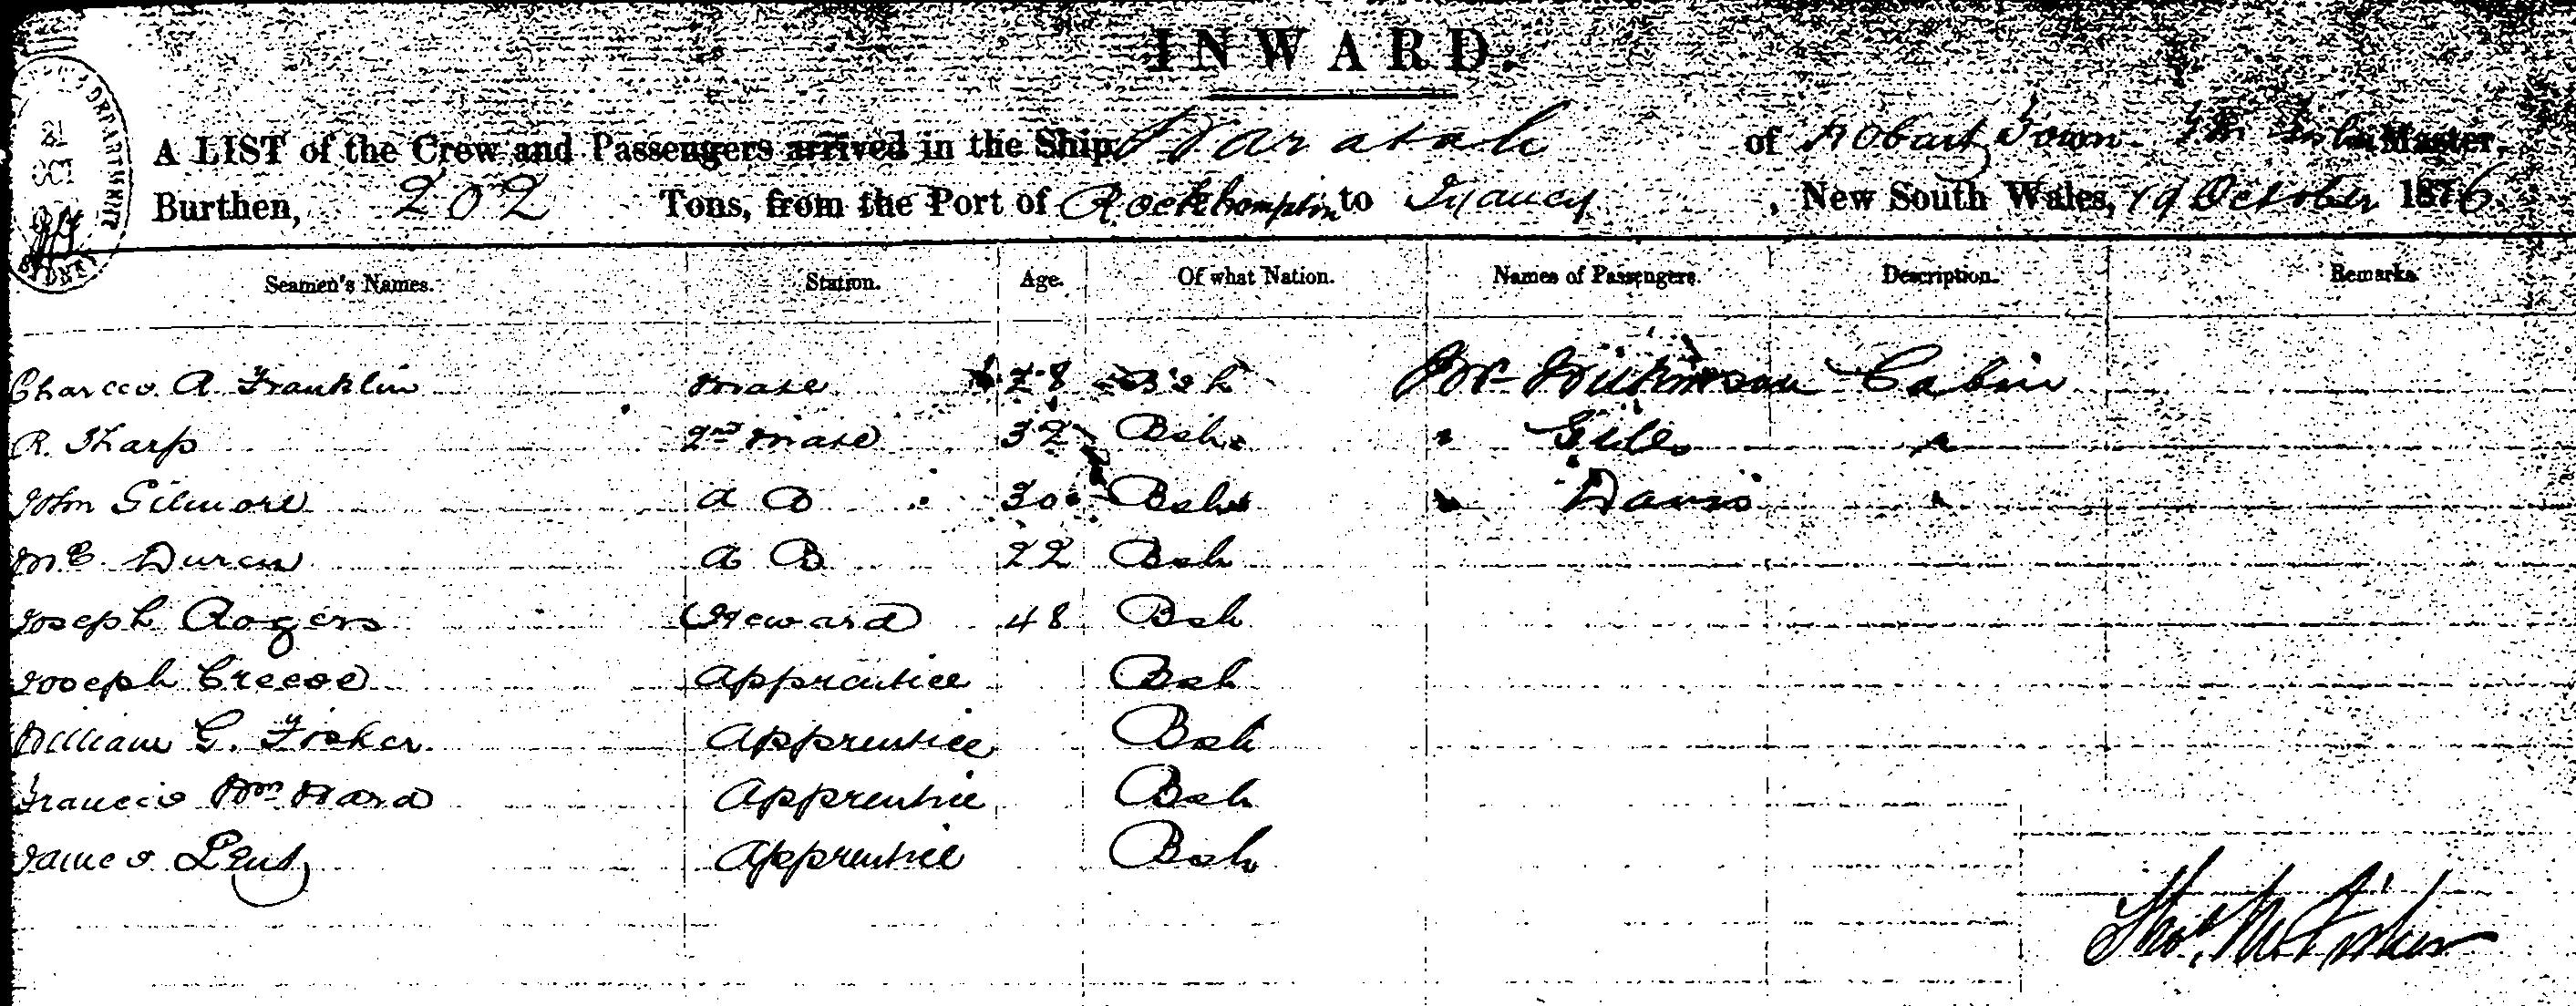 INWARD.
A LIST of the Crew and Passengers arrived in the Ship Waratah of Hobart Town Master,
Burthen, 202 Tons, from the Port of Rockhampton to , New South Wales, 19 October 1876.
21
OCT
SYDNEY
Seamen's Names. Station. Age. Of what Nation. Names of Passengers. Description. Remarks.
Charles A Franklin mate 28 Bsh Mr Wilkinson Cabin
R. Tharp 2nd mate 32 Bsh " Giles "
John Gilmore A B 30 Bsh " Davis "
A B 22 Bsh
Joseph Rogers Steward 48 Bsh
Joseph Creese Apprentice Bsh
William G. Fisher Apprentice Bsh
Francis Wm Ward Apprentice Bsh
James Apprentice Bsh
Thos. M. Fisher